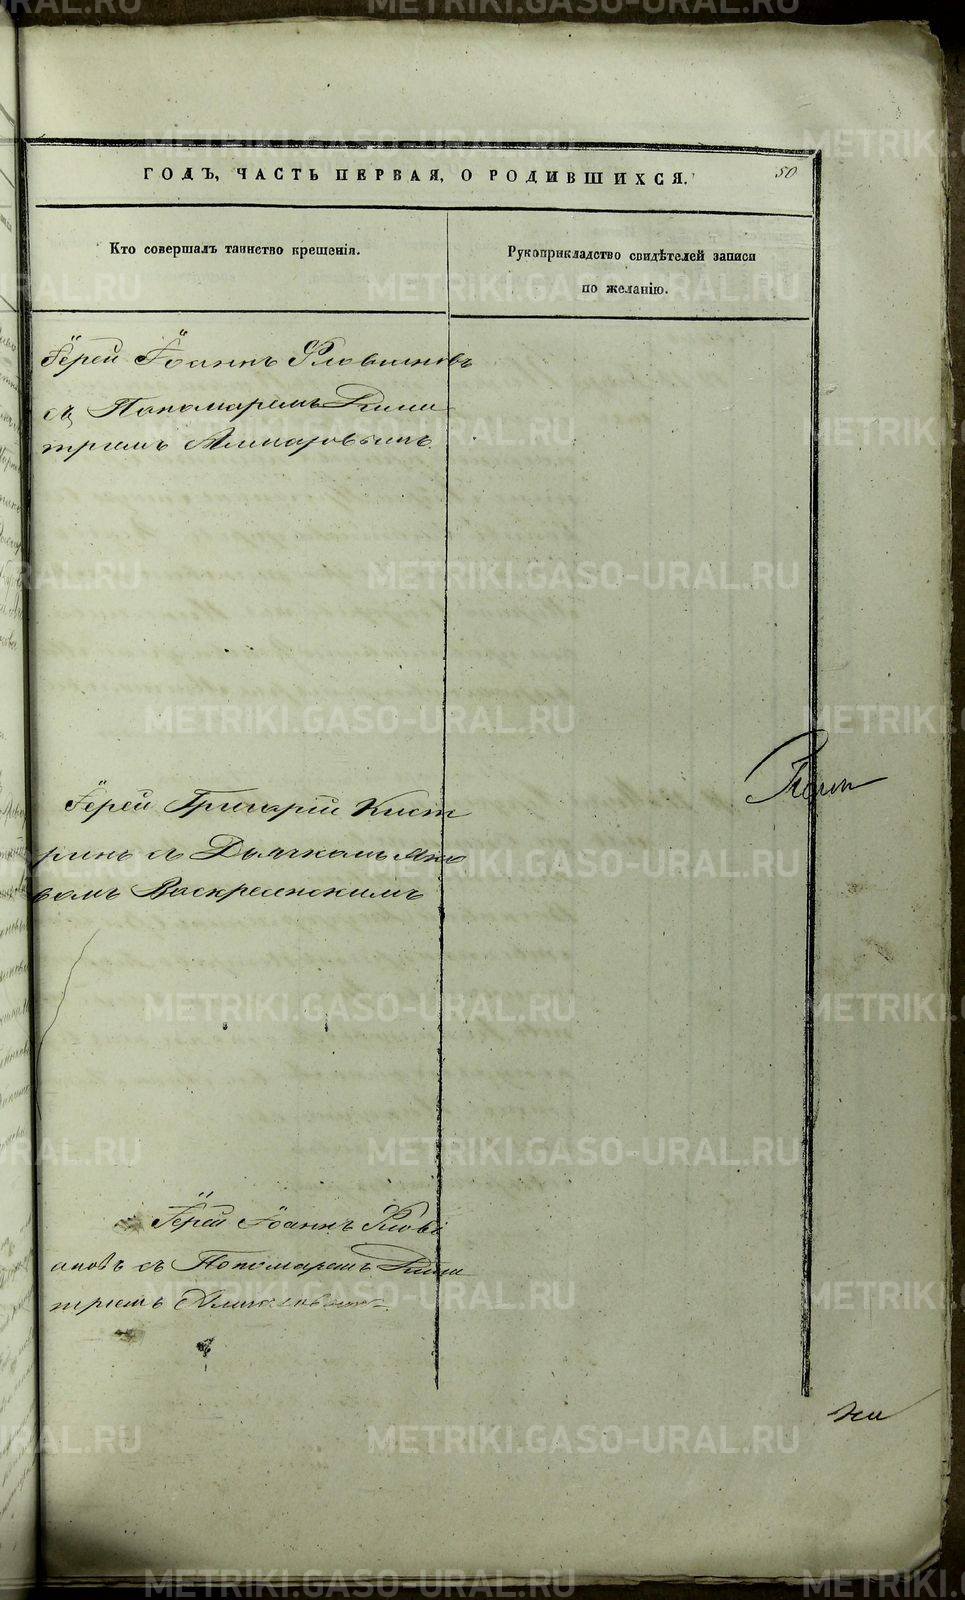 ГОДЪ, ЧАСТЬ ПЕРВАЯ, О РОДИВШИХСЯ.
50
Кто совершалъ таинство крещенія.
Рукоприкладство свидѣтелей записи
по желанію.
Іерей Іоаннъ Флавіановъ
съ Пономаремъ Дими
тріемъ
Іерей Григорій Кист
ринъ съ Дьячкомъ Яко
вомъ Воскресенскимъ
Іерей Іоаннъ Флаві
ановъ съ Пономаремъ Дими
тріемъ
METRIKI.GASO-URAL.RU